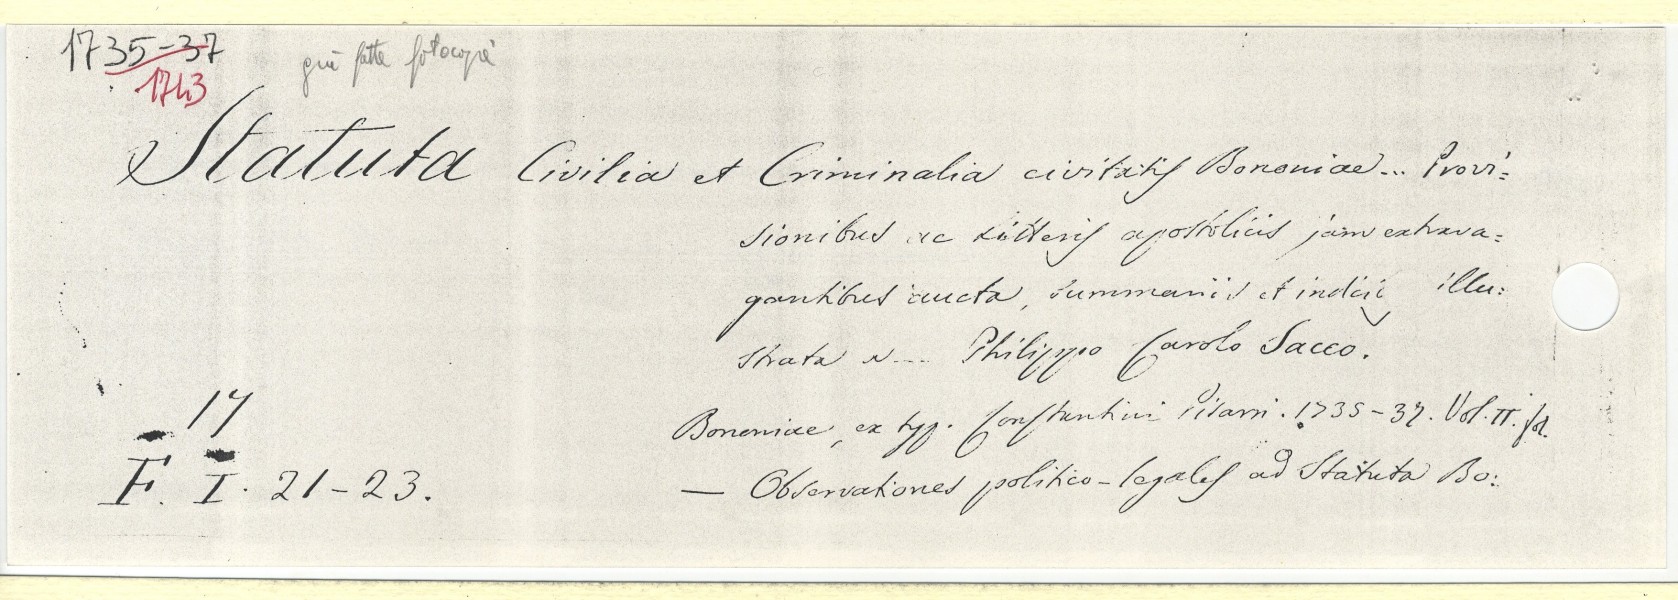 1735-37 già fatte fotocopie
1743
Statuta Civilia et Criminalia civitatis Bononiae... Provi=
sionibus ac Litteris apostolicis jam extrava=
gantibus aucta, summariis et indicij illu=
strata a ... Philippo Carolo Sacco.
Bononiae, ex typ. Constantini Pisarri. 1735-37. Vol. II. fol.
17
F. I. 21-23.
— Observationes politico-legales ad Statuta Bo: